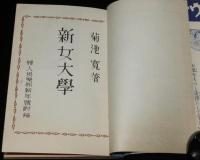 菊池寛著
新女大學
婦人倶樂部新年號附録